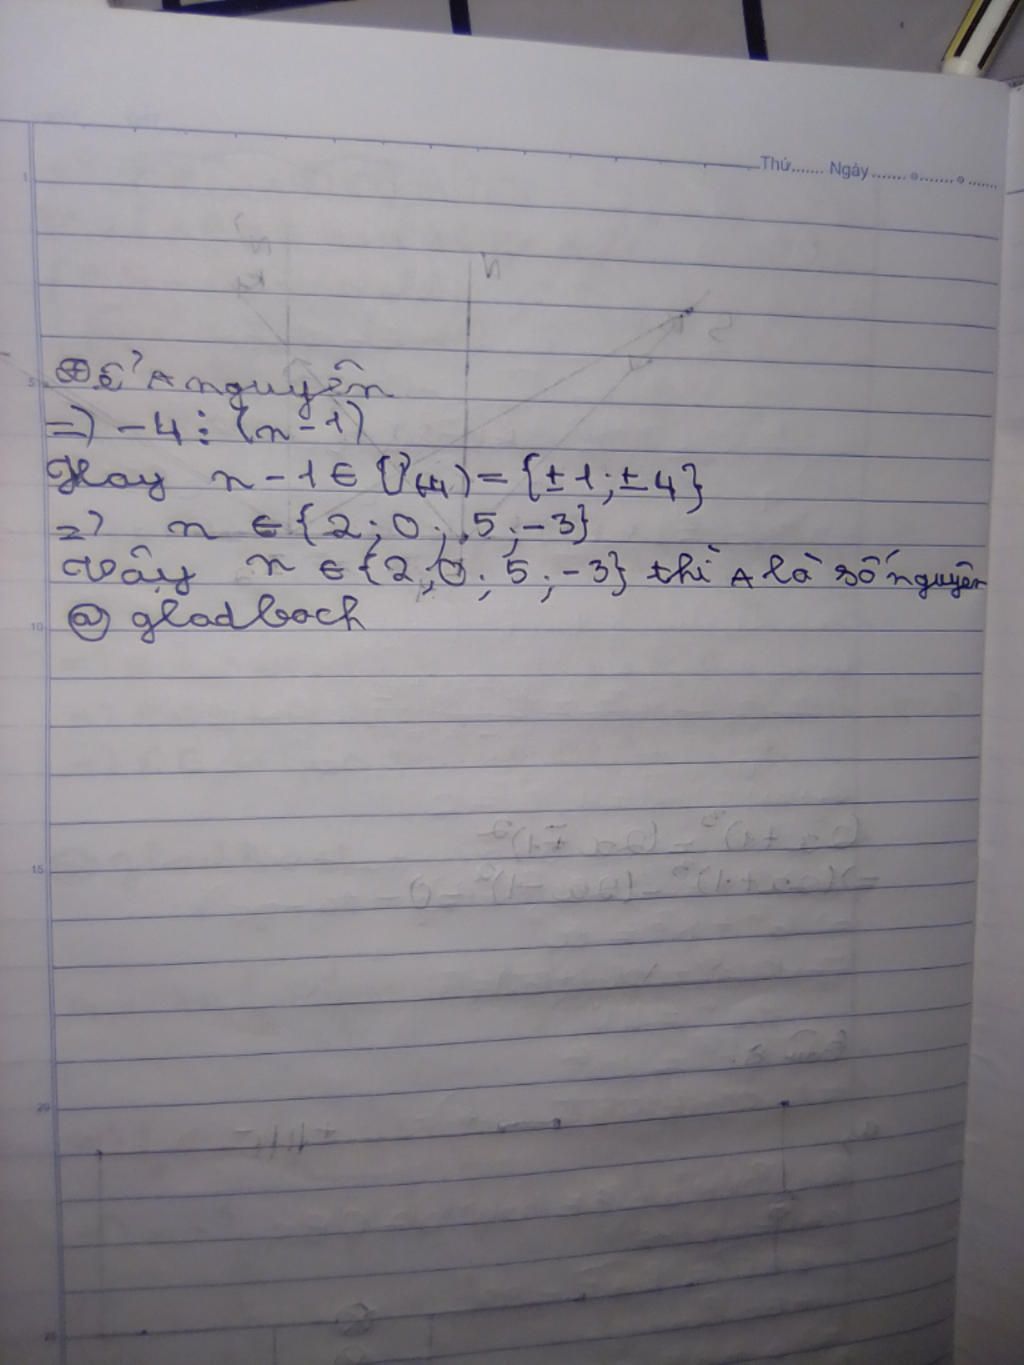 Thứ....... Ngày.......
Để A nguyên
=> -4 ⋮ (n-1)
Hay n-1 ∈ Ư(-4) = {±1; ±4}
=> n ∈ {2; 0; 5; -3}
Vậy n ∈ {2; 0; 5; -3} thì A là số nguyên
@ gladbach